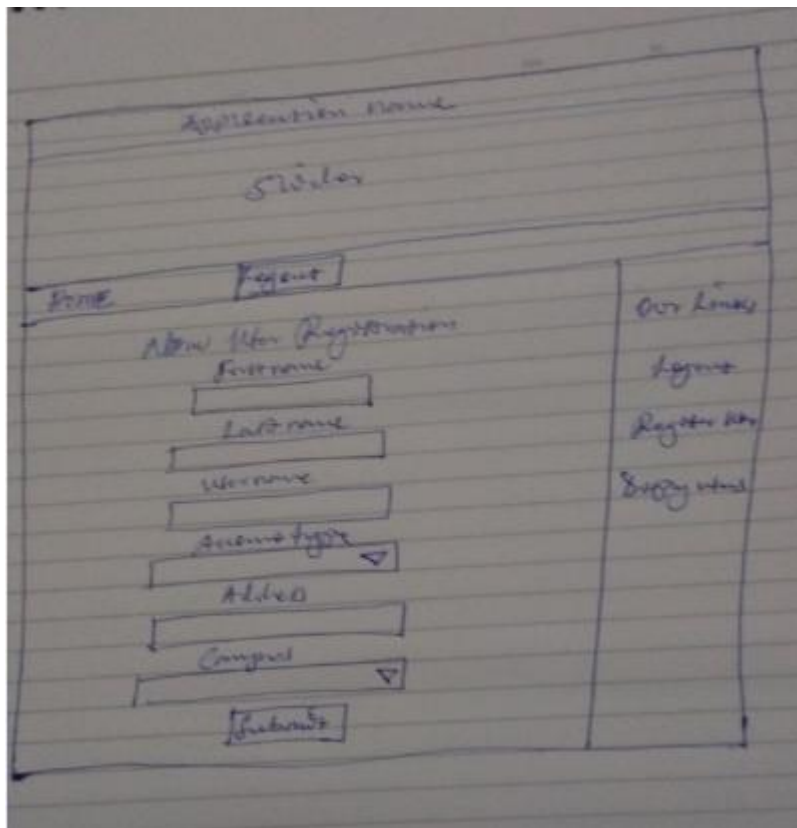 Application name
Slider
Home
New User Registration
First name
Last name
Username
Account type
Address
Campus
Submit
Our Links
Register User